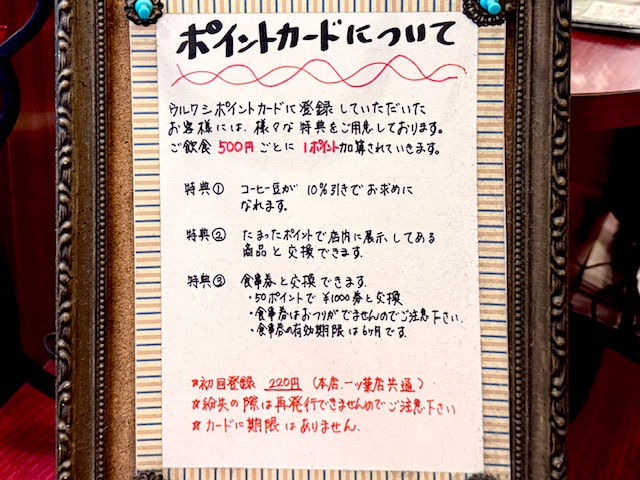 ポイントカードについて
ウルワシポイントカードに登録していただいた
お客様には、様々な特典をご用意しております。
ご飲食 500円ごとに 1ポイント加算されていきます。
特典① コーヒー豆が 10%引きでお求めに
なれます。
特典② たまったポイントで店内に展示してある
商品と交換できます。
特典③ 食事券と交換できます。
・50ポイントで ¥1000券と交換
・食事券はおつりがでませんのでご注意下さい.
・食事券の有効期限は6ヶ月です.
☆初回登録 220円 (本店、一ツ葉店共通)
☆紛失の際は再発行できませんのでご注意下さい
☆カードに期限はありません.